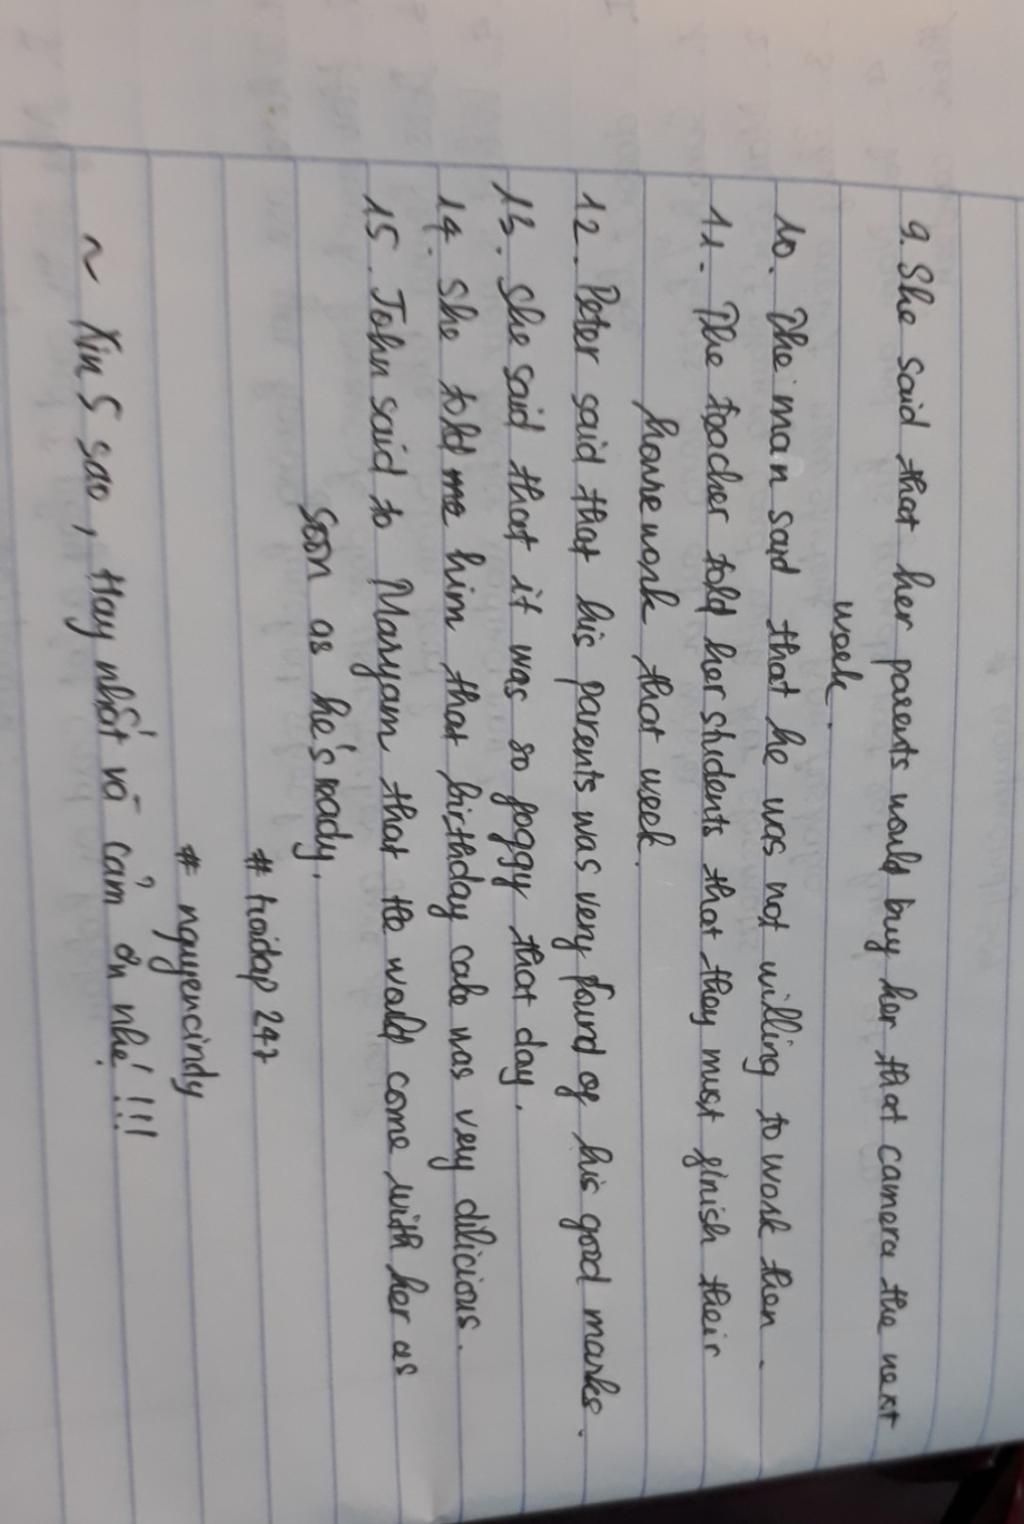 9. She said that her parents would buy her that camera the next
week.
10. The man said that he was not willing to work then.
11. The teacher told her students that they must finish their
homework that week.
12. Peter said that his parents was very found of his good marks.
13. She said that it was so foggy that day.
14. She told me him that birthday cake was very dilicious.
15. John said to Maryam that he would come with her as
soon as he's ready.
# hoidap 247
# nguyencindy
~ Xin 5 sao, Hay nhất và cảm ơn nhé!!!